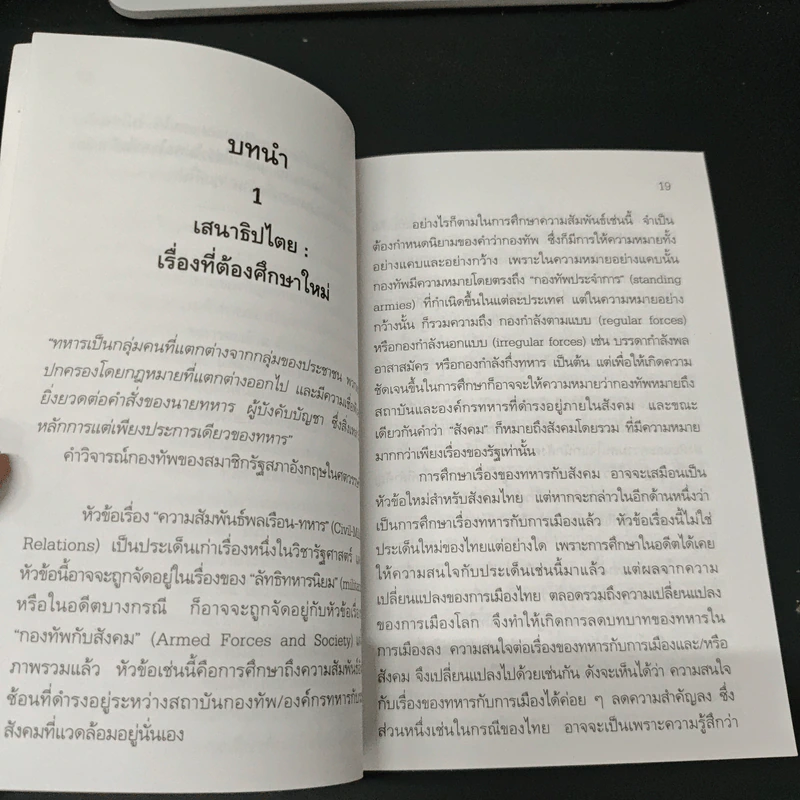 บทนำ
1
เสนาธิปไตย :
เรื่องที่ต้องศึกษาใหม่
"ทหารเป็นกลุ่มคนที่แตกต่างจากกลุ่มของประชาชน
ปกครองโดยกฎหมายที่แตกต่างออกไป และมีความเชื่อ
ยิ่งยวดต่อคำสั่งของนายทหาร ผู้บังคับบัญชา
หลักการแต่เพียงประการเดียวของทหาร"
คำวิจารณ์กองทัพของสมาชิกรัฐสภาอังกฤษใน
หัวข้อเรื่อง "ความสัมพันธ์พลเรือน-ทหาร"
Relations) เป็นประเด็นเก่าเรื่องหนึ่งในวิชารัฐศาสตร์
หัวข้อนี้อาจจะถูกจัดอยู่ในเรื่องของ "ลัทธิทหารนิยม"
หรือในอดีตบางกรณี ก็อาจจะถูกจัดอยู่กับหัวข้อเรื่อง
"กองทัพกับสังคม" (Armed Forces and Society)
ภาพรวมแล้ว หัวข้อเช่นนี้คือการศึกษาถึงความสัมพันธ์
ซ้อนที่ดำรงอยู่ระหว่างสถาบันกองทัพ/องค์กรทหารกับ
สังคมที่แวดล้อมอยู่นั่นเอง
19
อย่างไรก็ตามในการศึกษาความสัมพันธ์เช่นนี้ จำเป็น
ต้องกำหนดนิยามของคำว่ากองทัพ ซึ่งก็มีการให้ความหมายทั้ง
อย่างแคบและอย่างกว้าง เพราะในความหมายอย่างแคบนั้น
กองทัพมีความหมายโดยตรงถึง "กองทัพประจำการ" (standing
armies) ที่กำเนิดขึ้นในแต่ละประเทศ แต่ในความหมายอย่าง
กว้างนั้น ก็รวมความถึง กองกำลังตามแบบ (regular forces)
หรือกองกำลังนอกแบบ (irregular forces) เช่น บรรดากำลังพล
อาสาสมัคร หรือกองกำลังกึ่งทหาร เป็นต้น แต่เพื่อให้เกิดความ
ชัดเจนขึ้นในการศึกษาก็อาจจะให้ความหมายว่ากองทัพหมายถึง
สถาบันและองค์กรทหารที่ดำรงอยู่ภายในสังคม และขณะ
เดียวกันคำว่า "สังคม" ก็หมายถึงสังคมโดยรวม ที่มีความหมาย
มากกว่าเพียงเรื่องของรัฐเท่านั้น
การศึกษาเรื่องของทหารกับสังคม อาจจะเสมือนเป็น
หัวข้อใหม่สำหรับสังคมไทย แต่หากจะกล่าวในอีกด้านหนึ่งว่า
เป็นการศึกษาเรื่องทหารกับการเมืองแล้ว หัวข้อเรื่องนี้ไม่ใช่
ประเด็นใหม่ของไทยแต่อย่างใด เพราะการศึกษาในอดีตได้เคย
ให้ความสนใจกับประเด็นเช่นนี้มาแล้ว แต่ผลจากความ
เปลี่ยนแปลงของการเมืองไทย ตลอดรวมถึงความเปลี่ยนแปลง
ของการเมืองโลก จึงทำให้เกิดการลดบทบาทของทหารใน
การเมืองลง ความสนใจต่อเรื่องของทหารกับการเมืองและ/หรือ
สังคม จึงเปลี่ยนแปลงไปด้วยเช่นกัน ดังจะเห็นได้ว่า ความสนใจ
กับเรื่องของทหารกับการเมืองได้ค่อย ๆ ลดความสำคัญลง ซึ่ง
ส่วนหนึ่งเช่นในกรณีของไทย อาจจะเป็นเพราะความรู้สึกว่า